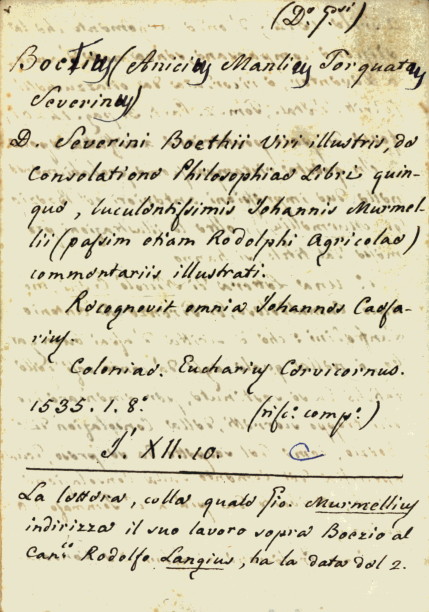 (D.º Gesi)
Boetius (Anicius Manlius Torquatus
Severinus)
D. Severini Boethii Viri illustris, de
Consolatione Philosophiae Libri quin-
que, luculentissimis Johannis Murmel-
lii (passim etiam Rodolphi Agricolae)
commentariis illustrati.
Recognovit omnia Johannes Caesa-
rius.
Coloniae. Eucharius Cervicornus.
1535. 1. 8.º (risc.º comp.º)
XII. 10.
La lettera, colla quale Gio. Murmellius
indirizza il suo lavoro sopra Boezio al
Can.co Rodolfo Langius, ha la data del 2.